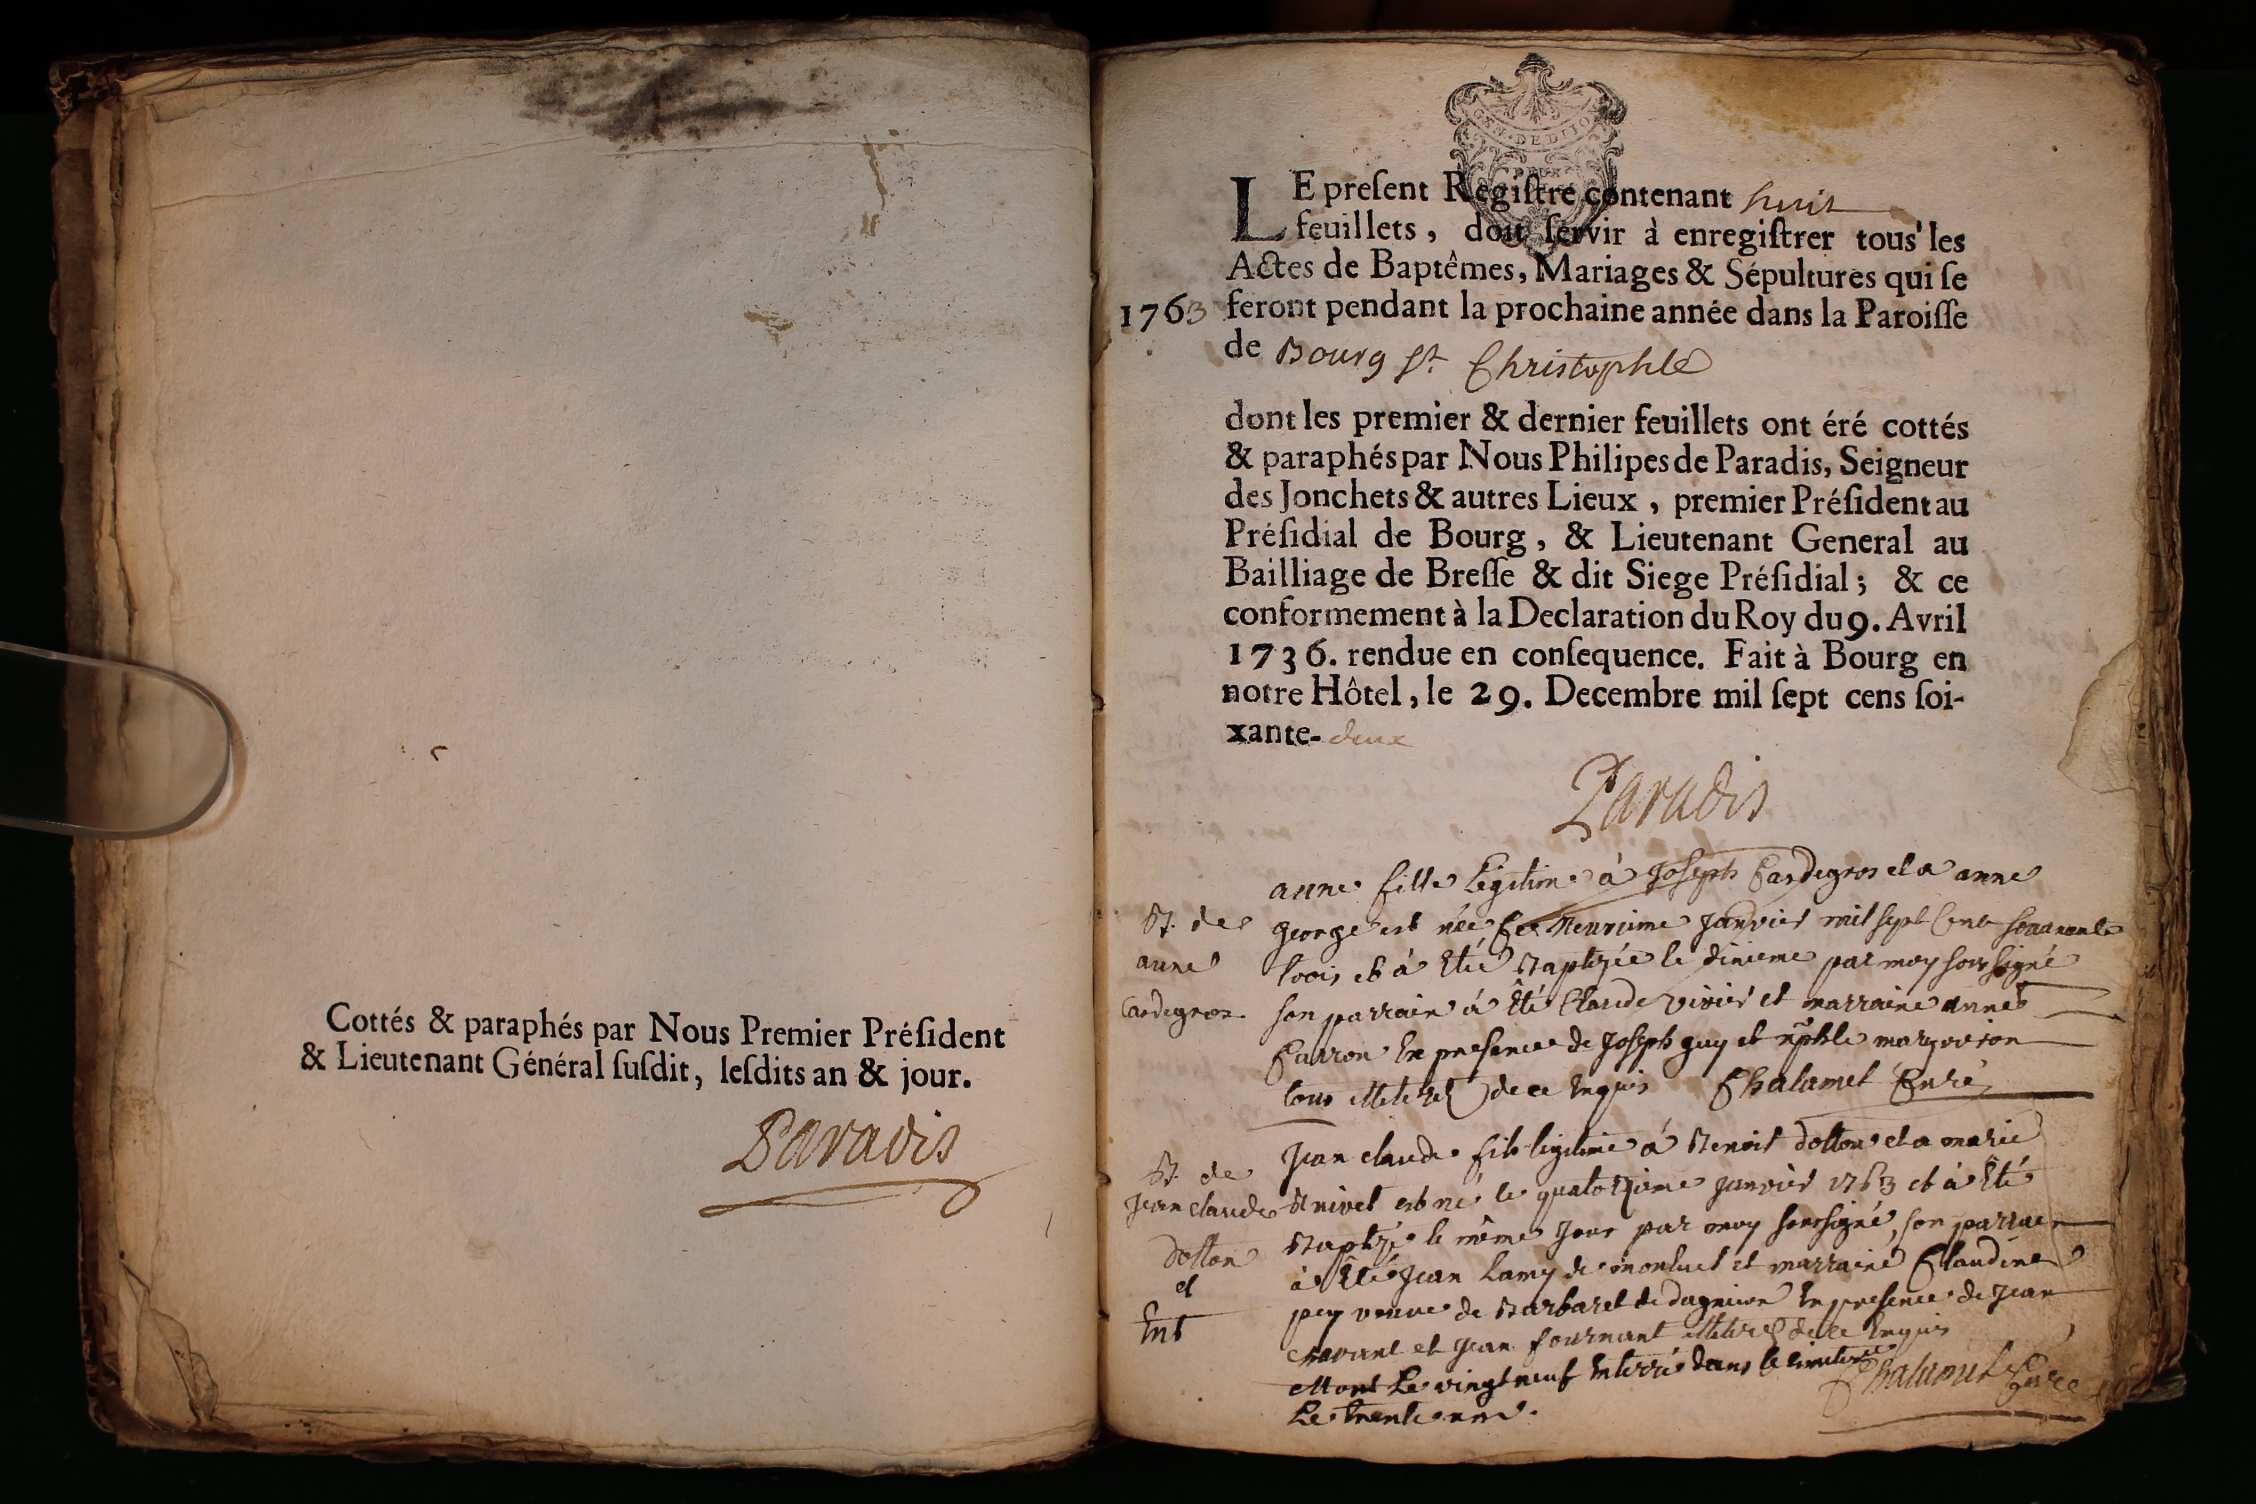 Cottés & paraphés par Nous Premier Présſident
& Lieutenant Général ſuſdit, leſdits an & jour.
Paradis
GEN. DE DIJO
DEUX
LE preſent Regiſtre contenant huit
feuillets, doit ſervir à enregiſtrer tous les
Actes de Baptêmes, Mariages & Sépultures qui ſe
1763 feront pendant la prochaine année dans la Paroiſſe
de Bourg St Christophle
dont les premier & dernier feuillets ont éré cottés
& paraphés par Nous Philipes de Paradis, Seigneur
des Jonchets & autres Lieux, premier Préſident au
Préſidial de Bourg, & Lieutenant General au
Bailliage de Breſſe & dit Siege Préſidial; & ce
conformement à la Declaration du Roy du 9. Avril
1736. rendue en conſequence. Fait à Bourg en
notre Hôtel, le 29. Decembre mil ſept cens ſoi-
xante-deux
Paradis
B. de
anne
Cardegros
anne fille legitime à Joseph Cardegros et a anne
george est née le neuvieme Janvier mil sept cent soixante
trois et à Eté Baptizée le dixieme par moy soussigné
son parrain à Eté Claude vivier et marraine anne
Carron En presence de Joseph guy et
tous illeterés de ce Enquis Chalamel Curé
B. de
Jean claude
dotton
et
Ent
Jean claude fils legitime à Benoit dotton et a marie
Bnivet est né le quatorzieme Janvier 1763 et à Eté
Baptizé le même Jour par moy soussigné, son parrain
à Eté Jean Lamy de monluel et marraine Claudine
pey veuve de Barbaret de dagnieu En presence de Jean
et Jean fournant illeterés de ce Enquis
Mort Le vingt neuf Enterré dans le cimetiere
Le trente
Chalamel Curé